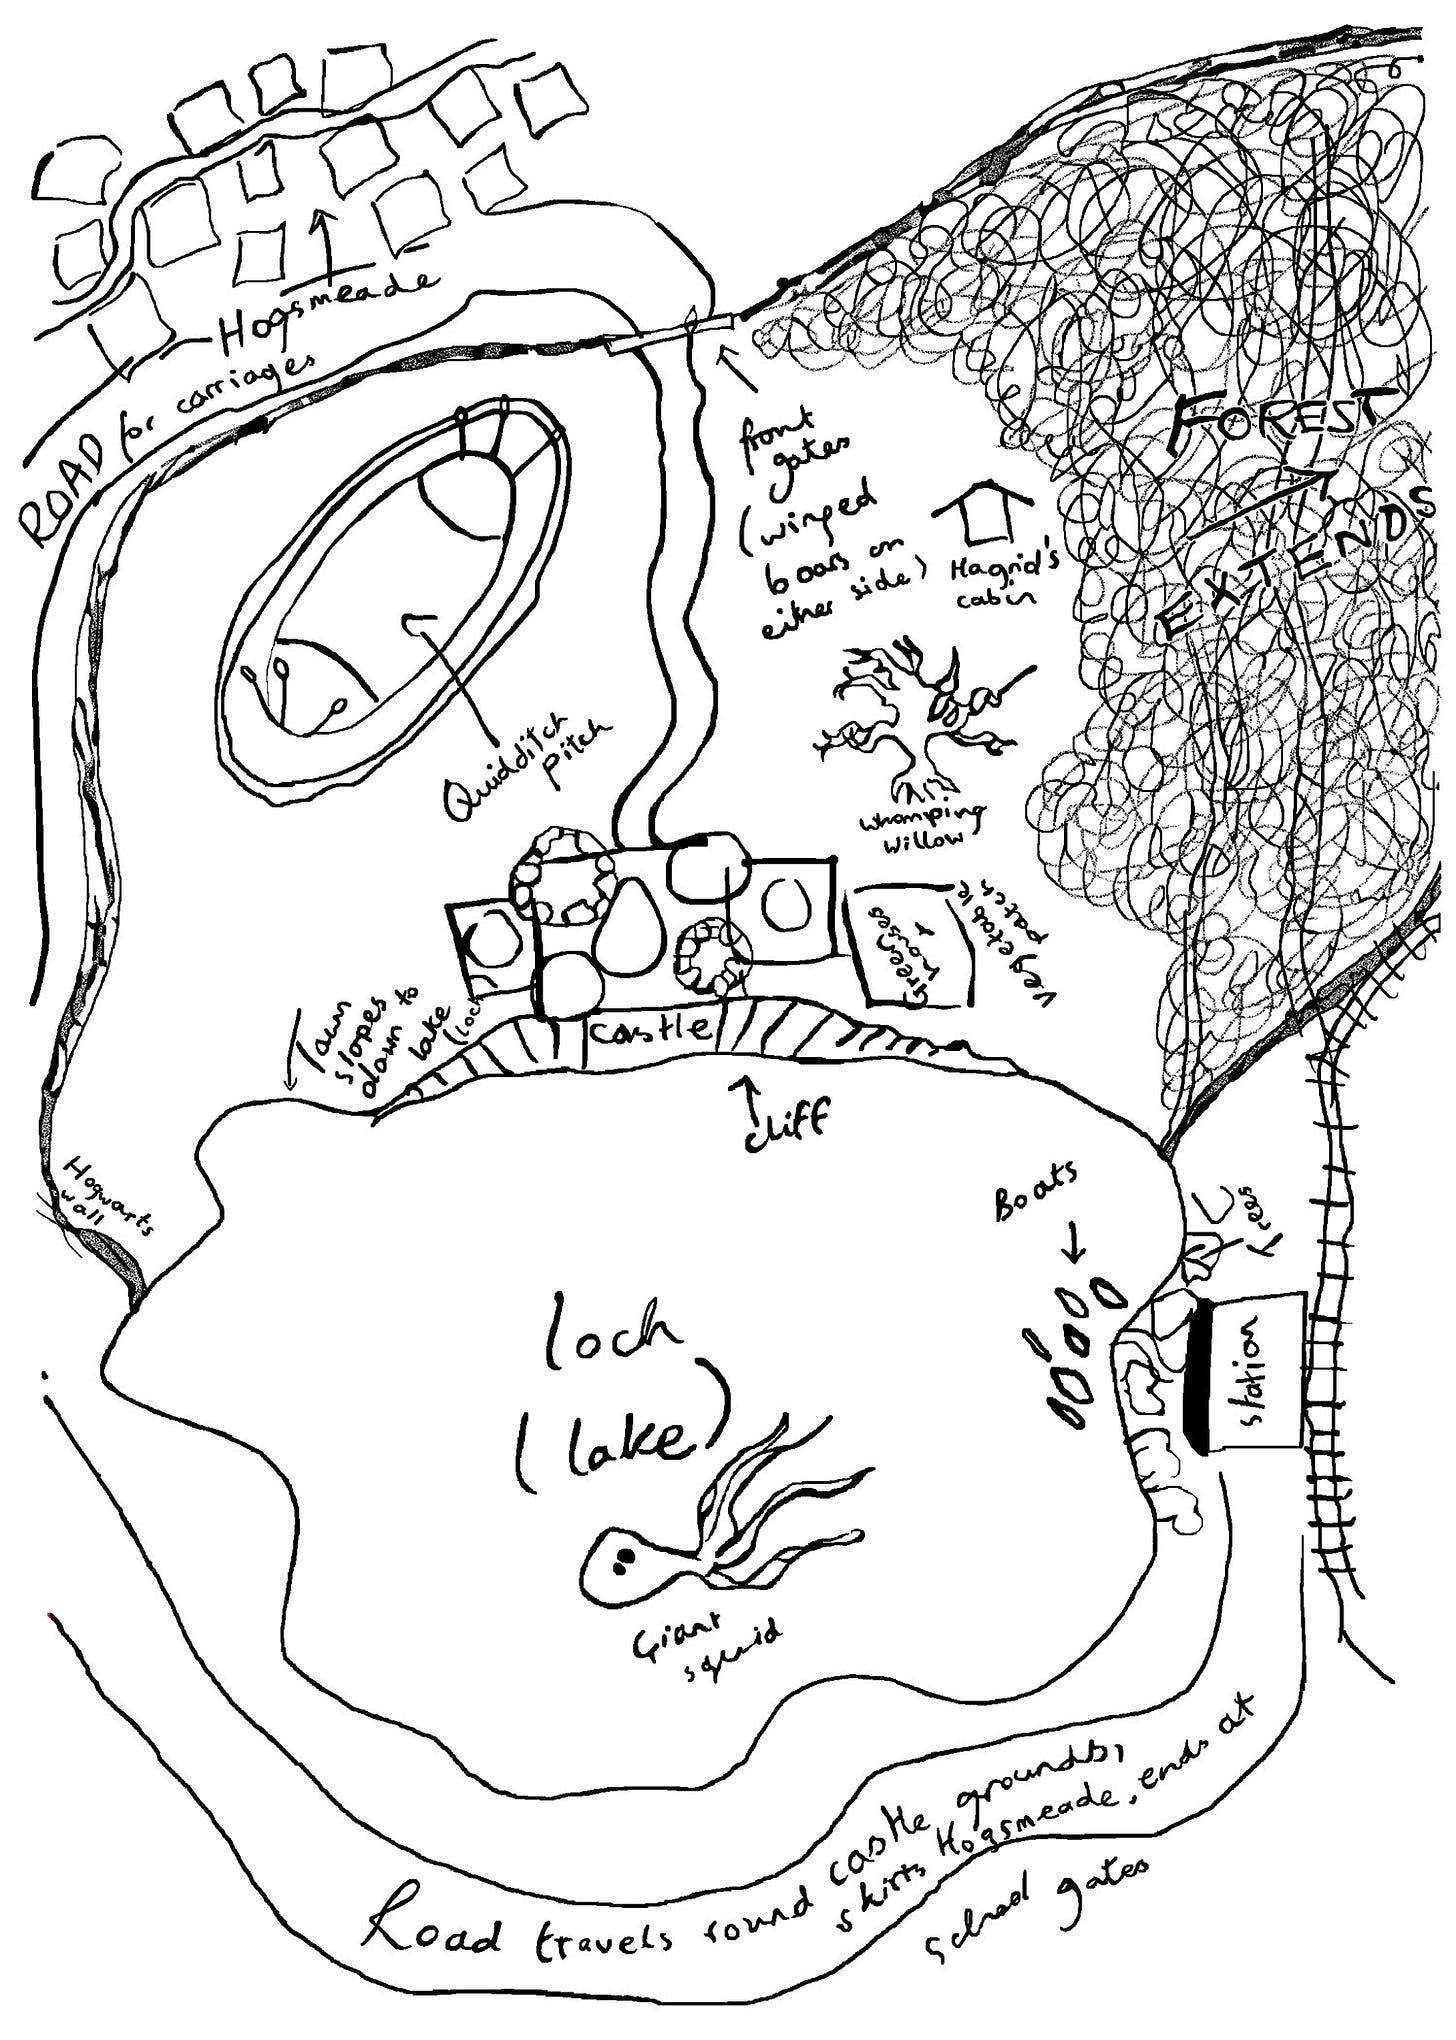 Hogsmeade
ROAD for carriages
front
gates
(winged
boars on
either side)
Hagrid's
cabin
FOREST
EXTENDS
Quidditch
pitch
Whomping
Willow
Green
houses
+
vegetable
patch
lawn
slopes to
down to
lake (loch
castle
cliff
Hogwarts
wall
Boats
trees
station
loch
(lake)
Giant
squid
Road travels round castle grounds,
skirts Hogsmeade, ends at
school gates